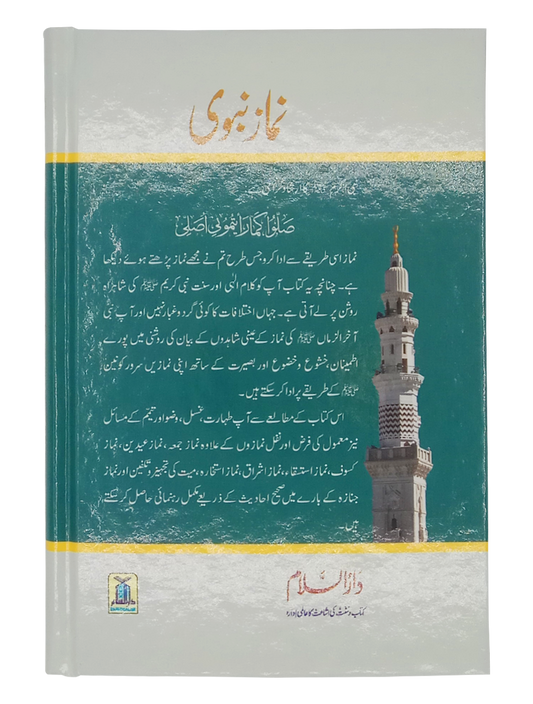 نماز نبوی
نبی اکرم ﷺ کا ارشاد گرامی ہے
صَلُّوا كَمَا رَأَيْتُمُونِي أُصَلِّي
نماز اسی طریقے سے ادا کرو جس طرح تم نے مجھے نماز پڑھتے ہوئے دیکھا
ہے۔ چنانچہ یہ کتاب آپ کو کلام الٰہی اور سنت نبی کریم ﷺ کی شاہراہ
روشن پر لے آتی ہے۔ جہاں اختلافات کا کوئی گرد و غبار نہیں اور آپ نبی
آخر الزماں ﷺ کی نماز کے عینی شاہدوں کے بیان کی روشنی میں پورے
اطمینان، خشوع و خضوع اور بصیرت کے ساتھ اپنی نمازیں سرور کونین
ﷺ کے طریقے پر ادا کر سکتے ہیں۔
اس کتاب کے مطالعے سے آپ طہارت، غسل، وضو اور تیمم کے مسائل
نیز معمول کی فرض اور نفل نمازوں کے علاوہ نماز جمعہ، نماز عیدین، نماز
کسوف، نماز استسقاء، نماز اشراق، نماز استخارہ، میت کی تجہیز و تکفین اور نماز
جنازہ کے بارے میں صحیح احادیث کے ذریعے مکمل رہنمائی حاصل کر سکتے
ہیں۔
دارالسلام
کتاب و سنت کی اشاعت کا عالمی ادارہ
دارالسلام